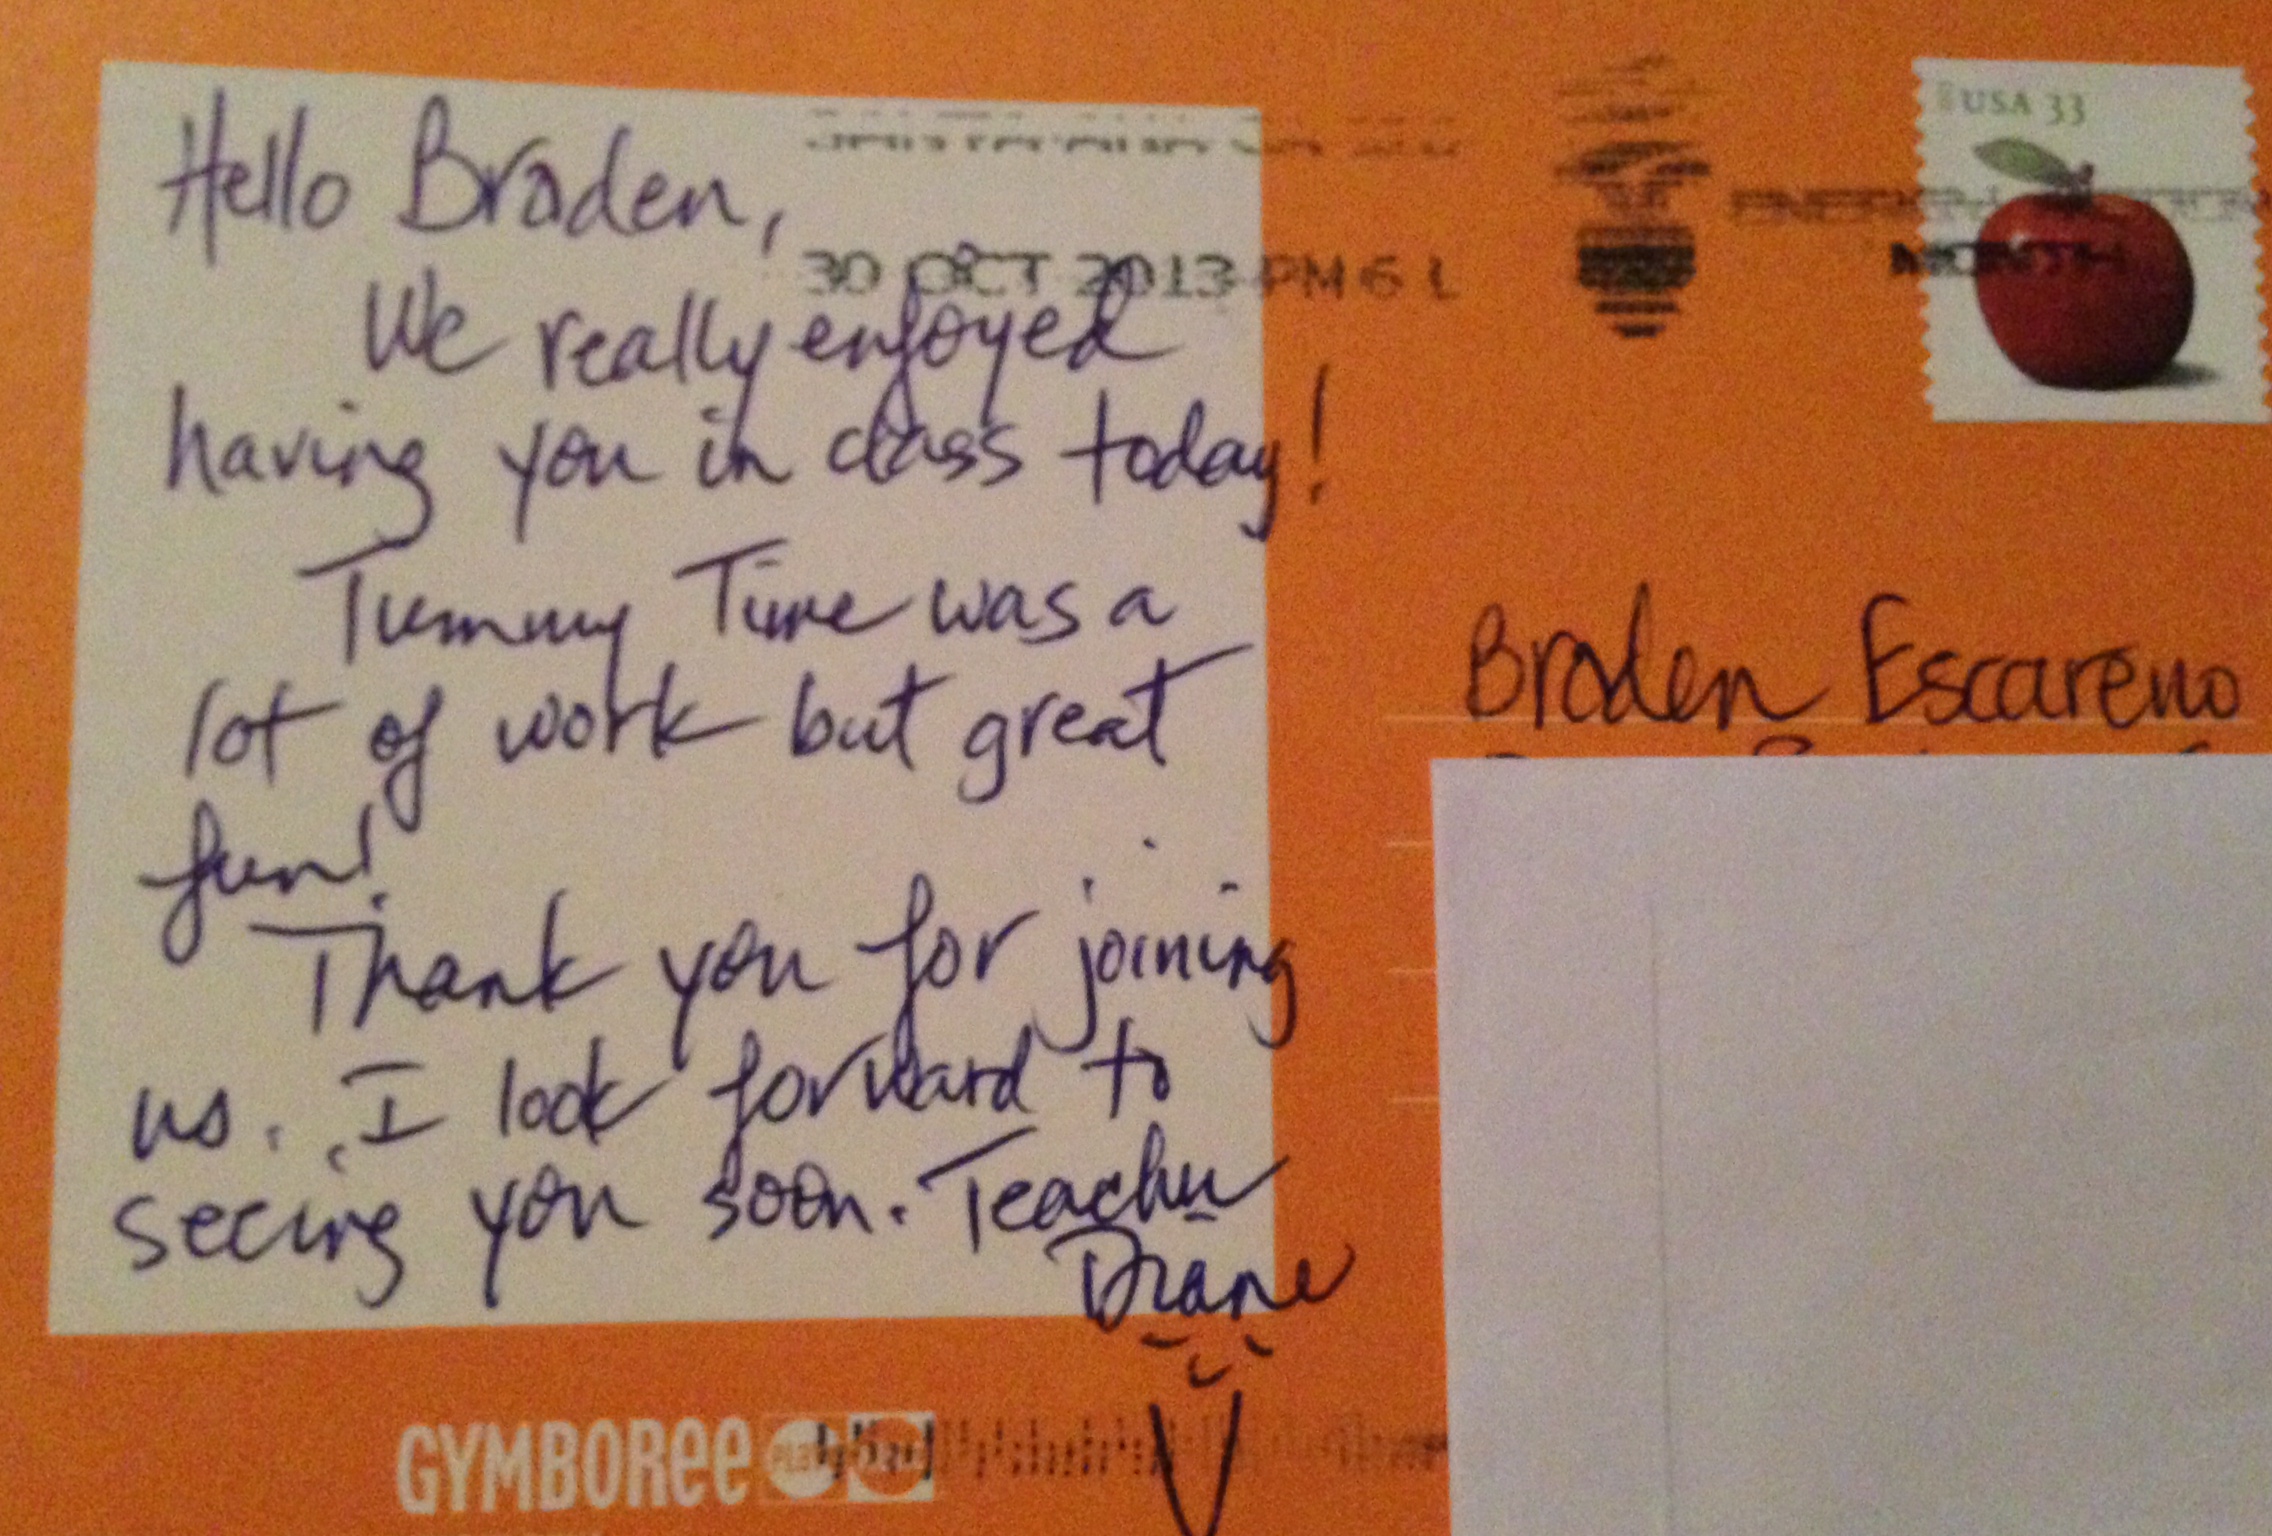 Hello Braden,
We really enjoyed
having you in class today!
Tummy Time was a
lot of work but great
fun!
Thank you for joining
us. I look forward to
seeing you soon. Teacher
Diane
30 OCT 2013 PM 6 L
USA 33
MONTH
Braden Escareno
GYMBOREE